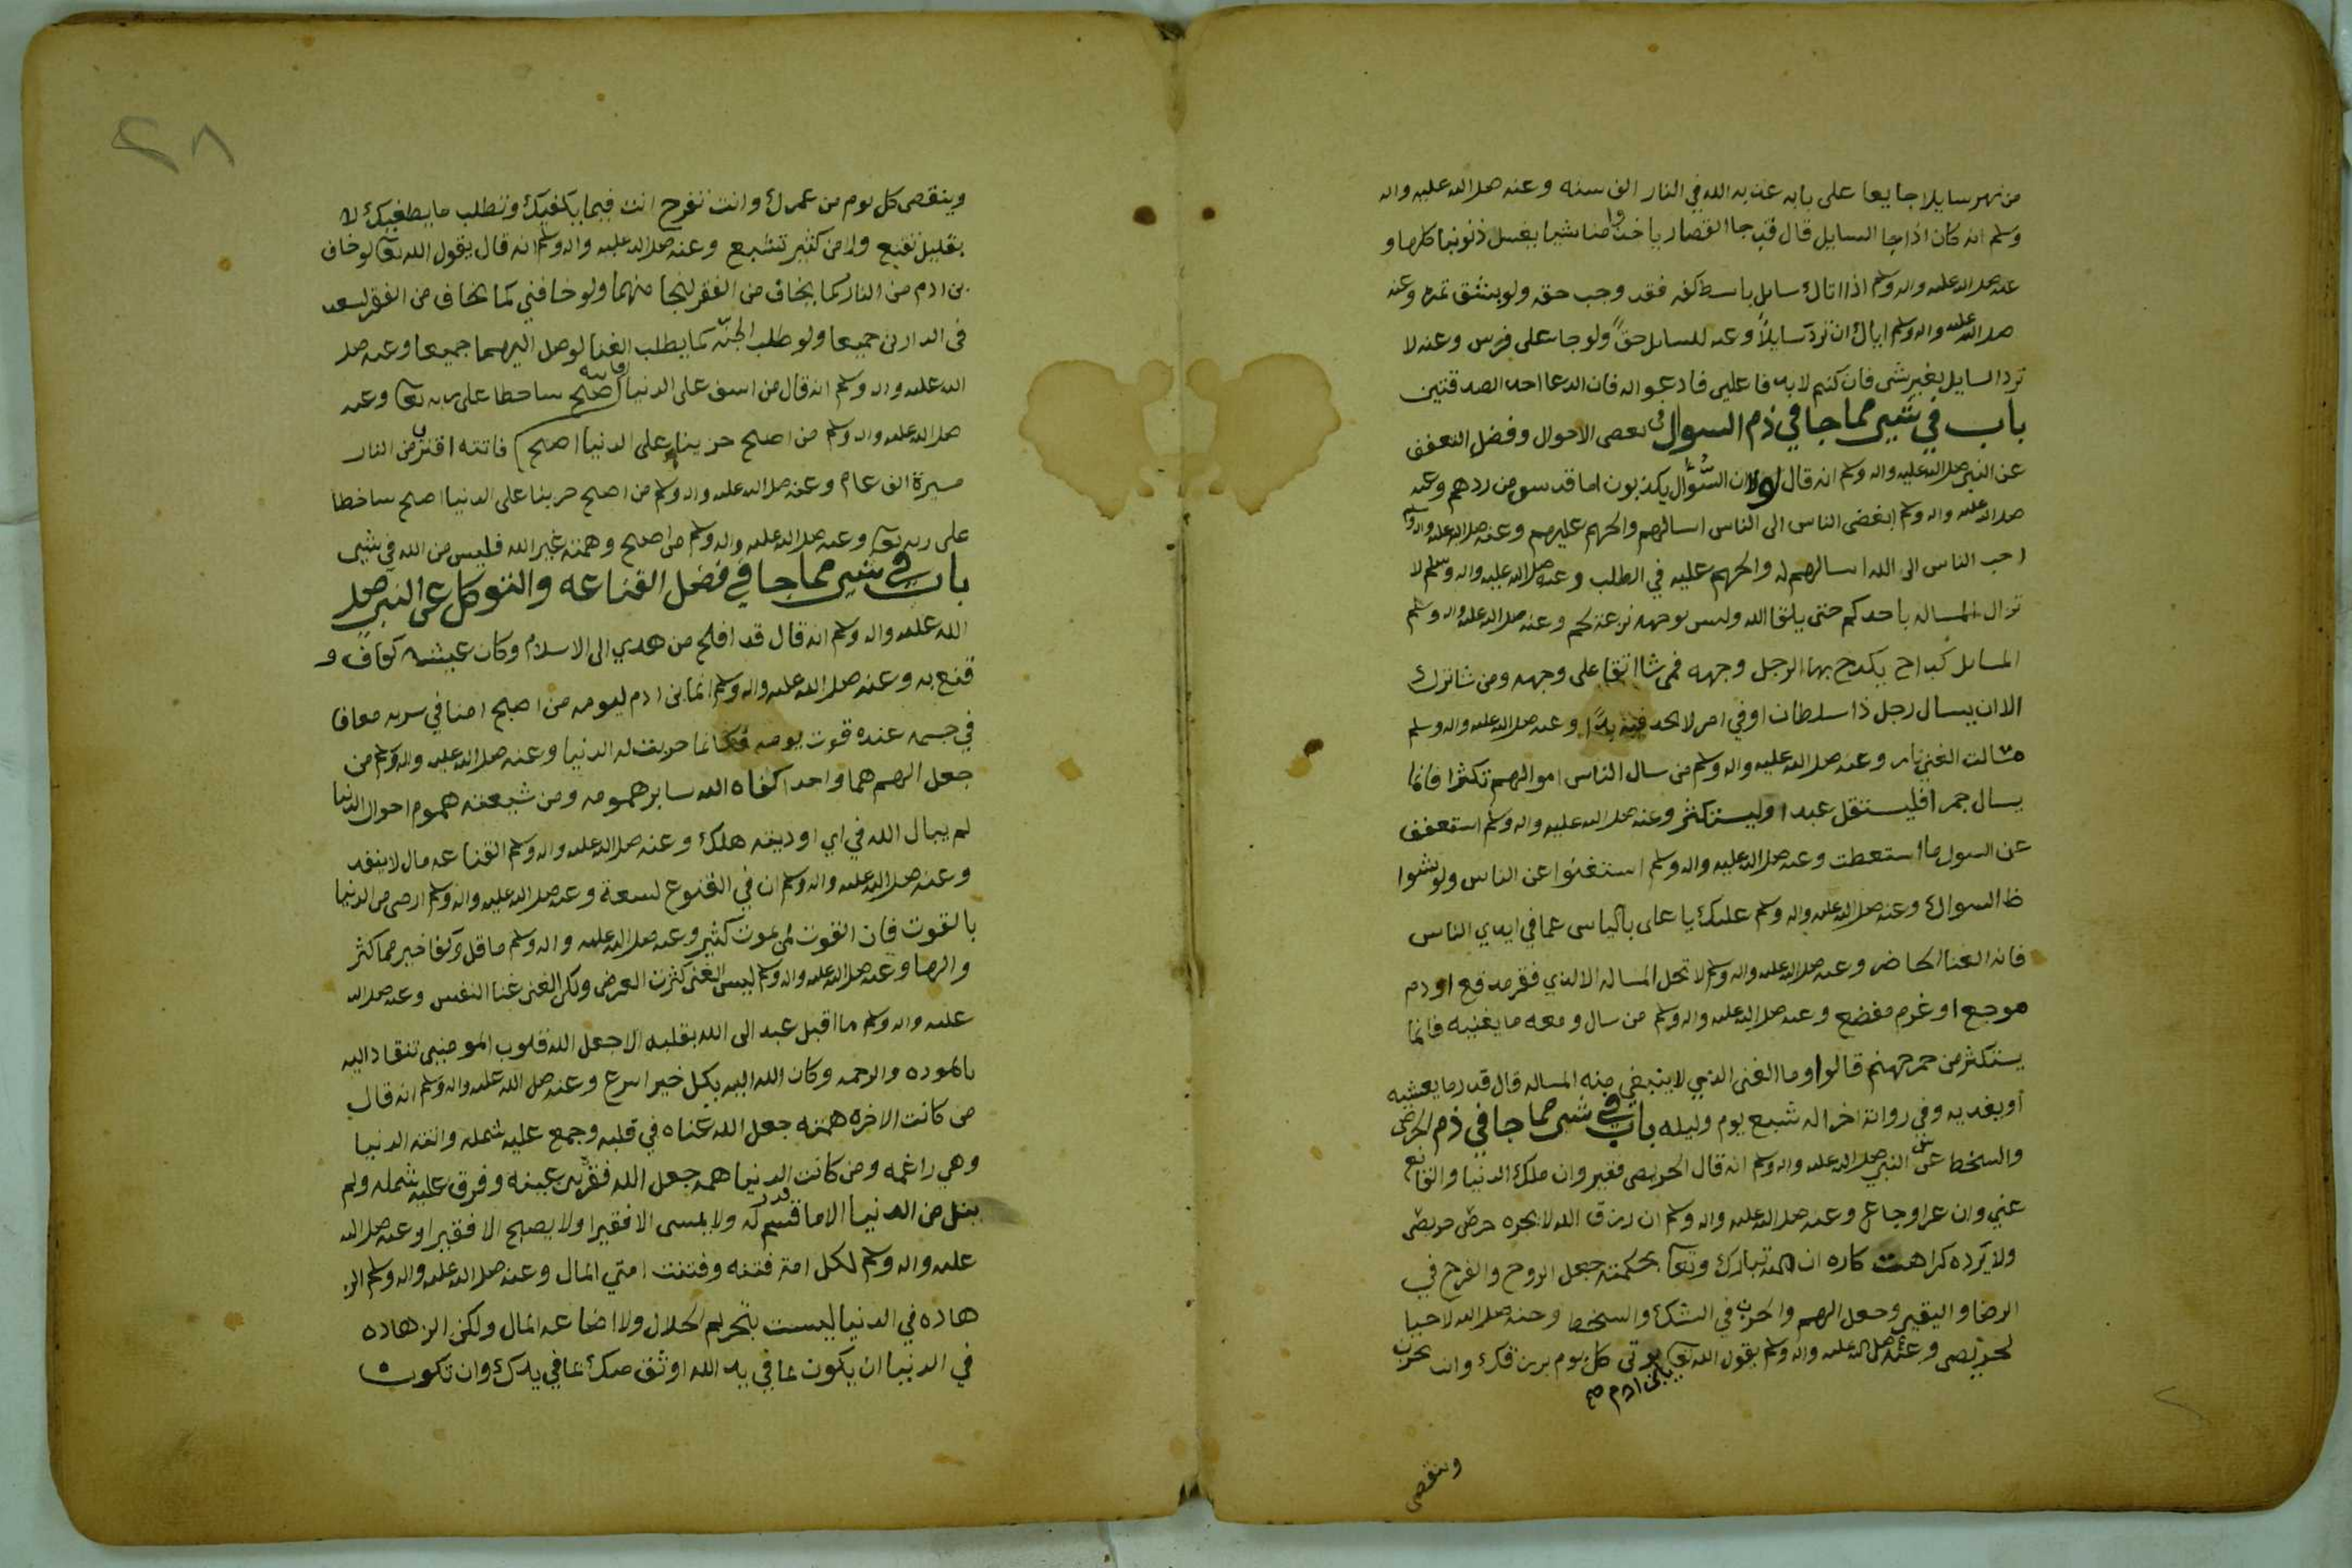 من نهر سايلا جايعا على بابه عذبه الله في النار الف سنه وعنه صلى الله عليه واله
وسلم انه كان اذا جا السايل قال قد جا القصار ياخذ منا شيا يغسل ذنوبنا كلها و
عنه صلى الله عليه واله وسلم اذا اتاك سايل باسط كفه فقد وجب حقه ولو بشق تمره وعنه
صلى الله عليه واله وسلم اياك ان ترد سايلاً وعنه للسايل حقٌ ولو جا على فرس وعنه لا
تردا السايل بغير شي فان كنتم لا بد فاعلين فادعوا له فان الدعا احد الصدقتين
باب في شيى مما جا في ذم السوال في بعض الاحوال وفضل التعفف
عن النبي صلى الله عليه واله وسلم انه قال لولا ان السُّؤَّال يكذبون لما قدس من ردهم وعنه
صلى الله عليه واله وسلم ابغض الناس الى الناس اسالهم والحهم عليهم وعنه صلى الله عليه واله وسلم
احب الناس الى الله اسالهم له والحهم عليه في الطلب وعنه صلى الله عليه واله وسلم لا
تزال المساله باحدكم حتى يلقا الله وليس بوجهه نزعة لحم وعنه صلى الله عليه واله وسلم
المسايل كداح يكدح بها الرجل وجهه فمن شا ابقا على وجهه ومن شا ترك
الا ان يسال رجل ذا سلطان او في امر لا يجد فيه بدًا وعنه صلى الله عليه واله وسلم
مسالت الغني نار وعنه صلى الله عليه واله وسلم من سال الناس اموالهم تكثرا فانما
يسال جمرا فليستقل عبدا وليستكثر وعنه صلى الله عليه واله وسلم استعفف
عن السول ما استعطت وعنه صلى الله عليه واله وسلم استغنوا عن الناس ولو بشوا
ظ السواك وعنه صلى الله عليه واله وسلم عليك يا على بالياس عما في ايدي الناس
فانه الغنا الحاضر وعنه صلى الله عليه واله وسلم لا تحل المساله الا لذي فقر مدقع او دم
موجع او غرم مفضع وعنه صلى الله عليه واله وسلم من سال ومعه ما يغنيه فانما
يستكثر من جمر جهنم قالوا وما الغنى الذي لا ينبغي منه المساله قال قدر ما يعشيه
او يغديه وفي رواية اخر اله شبع يوم وليله باب في شيى مما جا في ذم الحرص
والسخط عن النبي صلى الله عليه واله وسلم انه قال الحريص فقير وان ملك الدنيا والقانع
غني وان عرا وجاع وعنه صلى الله عليه واله وسلم ان رزق الله لا يجره حرص حريص
ولا يرده كراهت كاره ان الله تبارك وتعا بحكمته جعل الروح والفرح في
الرضا واليقين وجعل الهم والحزن في الشك والسخط وعنه صلى الله لا حيا
لحريص وعنه صلى الله عليه واله وسلم يقول الله تعا يوتى كل يوم برزقك وانت تحزن
يابن ادم صح
وينقص
٢٨
وينقص كل يوم من عمرك وانت تفرح انت فيما يكفيك وتطلب ما يطغيك لا
بقليل تقنع ولا من كثير تشبع وعنه صلى الله عليه واله وسلم انه قال يقول الله تعا لو خاف
بن ادم من النار كما يخاف من الفقر لنجا منهما ولو خافني كما يخاف من الفقر لسعد
في الدارين جميعا ولو طلب الجنه كما يطلب الغنا لوصل اليهما جميعا وعنه صلى
الله عليه واله وسلم انه قال من اسف على الدنيا فاتته اصبح ساخطا على ربه تعا وعنه
صلى الله عليه واله وسلم من اصبح حزينا على الدنيا اصبح فاتته اقترب من النار
مسيرة الف عام وعنه صلى الله عليه واله وسلم من اصبح حزينا على الدنيا اصبح ساخطا
على ربه تعا وعنه صلى الله عليه واله وسلم من اصبح وهمته غير الله فليس من الله في شيى
باب في شيى مما جا في فضل القناعه والتوكل عن النبي صلى
الله عليه واله وسلم انه قال قد افلح من هدي الى الاسلام وكان عيشه كفاف و
قنع به وعنه صلى الله عليه واله وسلم انما بن ادم ليومه من اصبح امنا في سربه معافا
في جسمه عنده قوت يومه فكانما حويت له الدنيا وعنه صلى الله عليه واله وسلم من
جعل الهم هما واحدا كفاه الله ساير همومه ومن شيعته هموم احوال الدنيا
لم يبال الله في اي اوديته هلك وعنه صلى الله عليه واله وسلم القناعه مال لا ينفد
وعنه صلى الله عليه واله وسلم ان في القنوع لسعة وعنه صلى الله عليه واله وسلم ارضى من الدنيا
بالقوت فان القوت لمن يموت كثير وعنه صلى الله عليه واله وسلم ما قل وكفا خير مما كثر
والها وعنه صلى الله عليه واله وسلم ليس الغنى كثرت العرض ولكن الغنى غنا النفس وعنه صلى الله
عليه واله وسلم ما اقبل عبد الى الله بقلبه الا جعل الله قلوب المومنين تنقاد اليه
بالموده والرحمه وكان الله اليه بكل خير اسرع وعنه صلى الله عليه واله وسلم انه قال
من كانت الاخره همته جعل الله غناه في قلبه وجمع عليه شمله واتته الدنيا
وهي راغمه ومن كانت الدنيا همه جعل الله فقره بين عينه وفرق عليه شمله ولم
ينل من الدنيا الا ما قسم له ولا يمسى الا فقيرا ولا يصبح الا فقيرا وعنه صلى الله
عليه واله وسلم لكل امة فتنه وفتنت امتي المال وعنه صلى الله عليه واله وسلم الز
هاده في الدنيا ليست بتحريم الحلال ولا اضاعه المال ولكن الزهاده
في الدنيا ان يكون بما في يد الله اوثق منك بما في يدك وان تكون